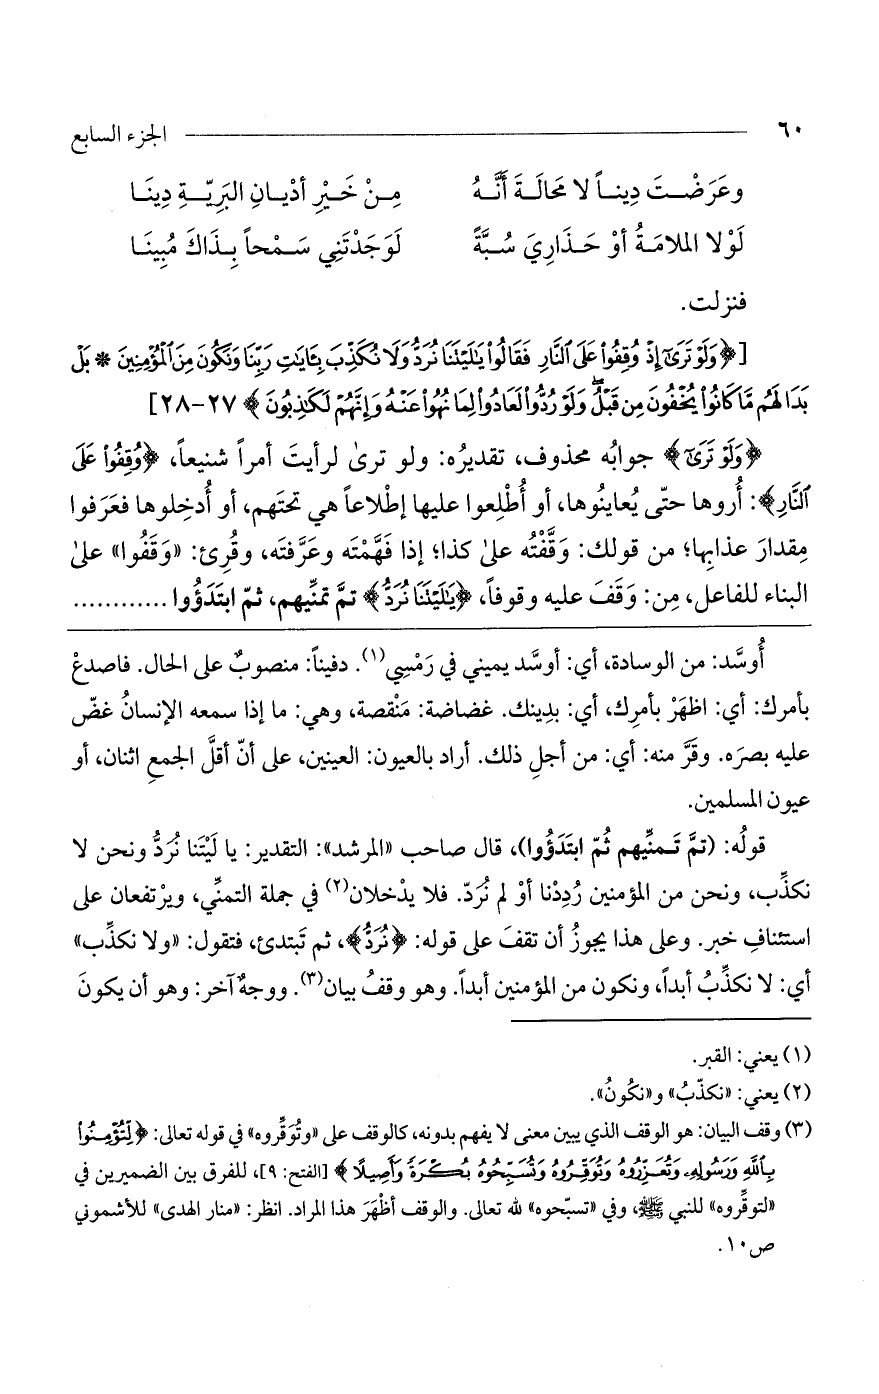 ٦٠ الجزء السابع
وعَرَضْـتَ دِينـاً لا مَحَالَـةَ أَنَّـهُ مِـنْ خَـيْرِ أدْيـانِ البَرِيّـةِ دِينَـا
لَوْلا الملامَـةُ أوْ حَـذَارِيَ سُـبَّةً لَوَجَدْتَنِي سَـمْحاً بِـذَاكَ مُبِينَـا
فنزلت.
[﴿وَلَوْ تَرَىٰٓ إِذْ وُقِفُوا۟ عَلَى ٱلنَّارِ فَقَالُوا۟ يَٰلَيْتَنَا نُرَدُّ وَلَا نُكَذِّبَ بِـَٔايَٰتِ رَبِّنَا وَنَكُونَ مِنَ ٱلْمُؤْمِنِينَ * بَلْ
بَدَا لَهُم مَّا كَانُوا۟ يُخْفُونَ مِن قَبْلُ ۖ وَلَوْ رُدُّوا۟ لَعَادُوا۟ لِمَا نُهُوا۟ عَنْهُ وَإِنَّهُمْ لَكَٰذِبُونَ﴾ ٢٧-٢٨]
﴿وَلَوْ تَرَىٰٓ﴾ جوابُه محذوف، تقديرُه: ولو ترىٰ لرأيتَ أمراً شنيعاً، ﴿وُقِفُوا۟ عَلَى
ٱلنَّارِ﴾: أُروها حتّى يُعاينُوها، أو أُطْلِعوا عليها إطْلاعاً هي تحتَهم، أو أُدخِلوها فعَرَفوا
مِقدارَ عذابِها؛ من قولك: وَقَّفْتُه علىٰ كذا؛ إذا فَهَّمْتَه وعَرَّفتَه، وقُرِئ: «وَقَفُوا» علىٰ
البناء للفاعل، مِن: وَقَفَ عليه وقوفاً، ﴿يَٰلَيْتَنَا نُرَدُّ﴾ تمَّ تمنِّيهم، ثمّ ابتَدَؤُوا ............
أُوسَّد: من الوسادة، أي: أوسَّد يميني في رَمْسِي(١). دفيناً: منصوبٌ على الحال. فاصدعْ
بأمرك: أي: اظهَرْ بأمرِك، أي: بدِينك. غضاضة: مَنْقصة، وهي: ما إذا سمعه الإنسانُ غضّ
عليه بصرَه. وقَرَّ منه: أي: من أجلِ ذلك. أراد بالعيون: العينين، على أنّ أقلَّ الجمعِ اثنان، أو
عيون المسلمين.
قولُه: (تمَّ تَـمنِّيهم ثُمّ ابتَدَؤُوا)، قال صاحب «المرشد»: التقدير: يا لَيْتَنا نُرَدُّ ونحن لا
نكذِّب، ونحن من المؤمنين رُدِدْنا أوْ لم نُرَدّ. فلا يدْخلان(٢) في جملة التمنِّي، ويرْتفعان على
استئنافِ خبر. وعلى هذا يجوزُ أن تقفَ على قوله: ﴿نُرَدُّ﴾، ثم تَبتدئ، فتقول: «ولا نكذِّب»
أي: لا نكذِّبُ أبداً، ونكون من المؤمنين أبداً. وهو وقفُ بيان(٣). ووجهٌ آخر: وهو أن يكونَ
(١) يعني: القبر.
(٢) يعني: «نكذّبُ» و«نكُونُ».
(٣) وقف البيان: هو الوقف الذي يبين معنى لا يفهم بدونه، كالوقف على «وتُوَقِّروه» في قوله تعالى: ﴿لِّتُؤْمِنُوا۟
بِٱللَّهِ وَرَسُولِهِۦ وَتُعَزِّرُوهُ وَتُوَقِّرُوهُ وَتُسَبِّحُوهُ بُكْرَةً وَأَصِيلًا﴾ [الفتح: ٩]، للفرق بين الضميرين في
«لتوقِّروه» للنبي ﷺ، وفي «تسبّحوه» لله تعالى. والوقف أظْهَرَ هذا المراد. انظر: «منار الهدى» للأشموني
ص١٠.